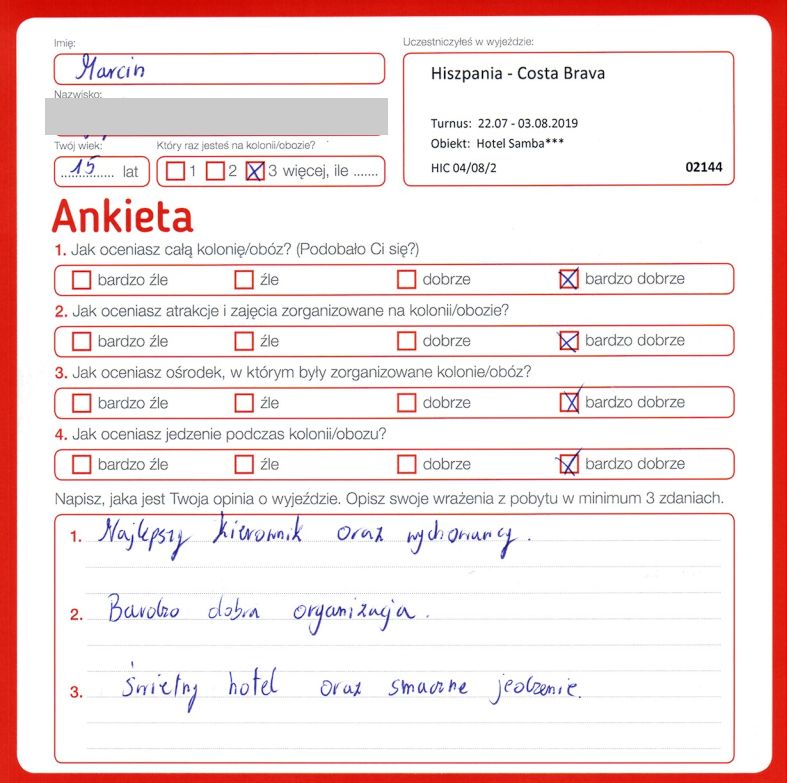 Imię:
Marcin
Nazwisko:
Twój wiek:
15 lat
Który raz jesteś na kolonii/obozie?
1 2 3 więcej, ile .......
Uczestniczyłeś w wyjeździe:
Hiszpania - Costa Brava
Turnus: 22.07 - 03.08.2019
Obiekt: Hotel Samba***
HIC 04/08/2 02144
Ankieta
1. Jak oceniasz całą kolonię/obóz? (Podobało Ci się?)
bardzo źle źle dobrze bardzo dobrze
2. Jak oceniasz atrakcje i zajęcia zorganizowane na kolonii/obozie?
bardzo źle źle dobrze bardzo dobrze
3. Jak oceniasz ośrodek, w którym były zorganizowane kolonie/obóz?
bardzo źle źle dobrze bardzo dobrze
4. Jak oceniasz jedzenie podczas kolonii/obozu?
bardzo źle źle dobrze bardzo dobrze
Napisz, jaka jest Twoja opinia o wyjeździe. Opisz swoje wrażenia z pobytu w minimum 3 zdaniach.
1. Najlepszy kierownik oraz wychowawcy.
2. Bardzo dobra organizacja.
3. Świetny hotel oraz smaczne jedzenie.